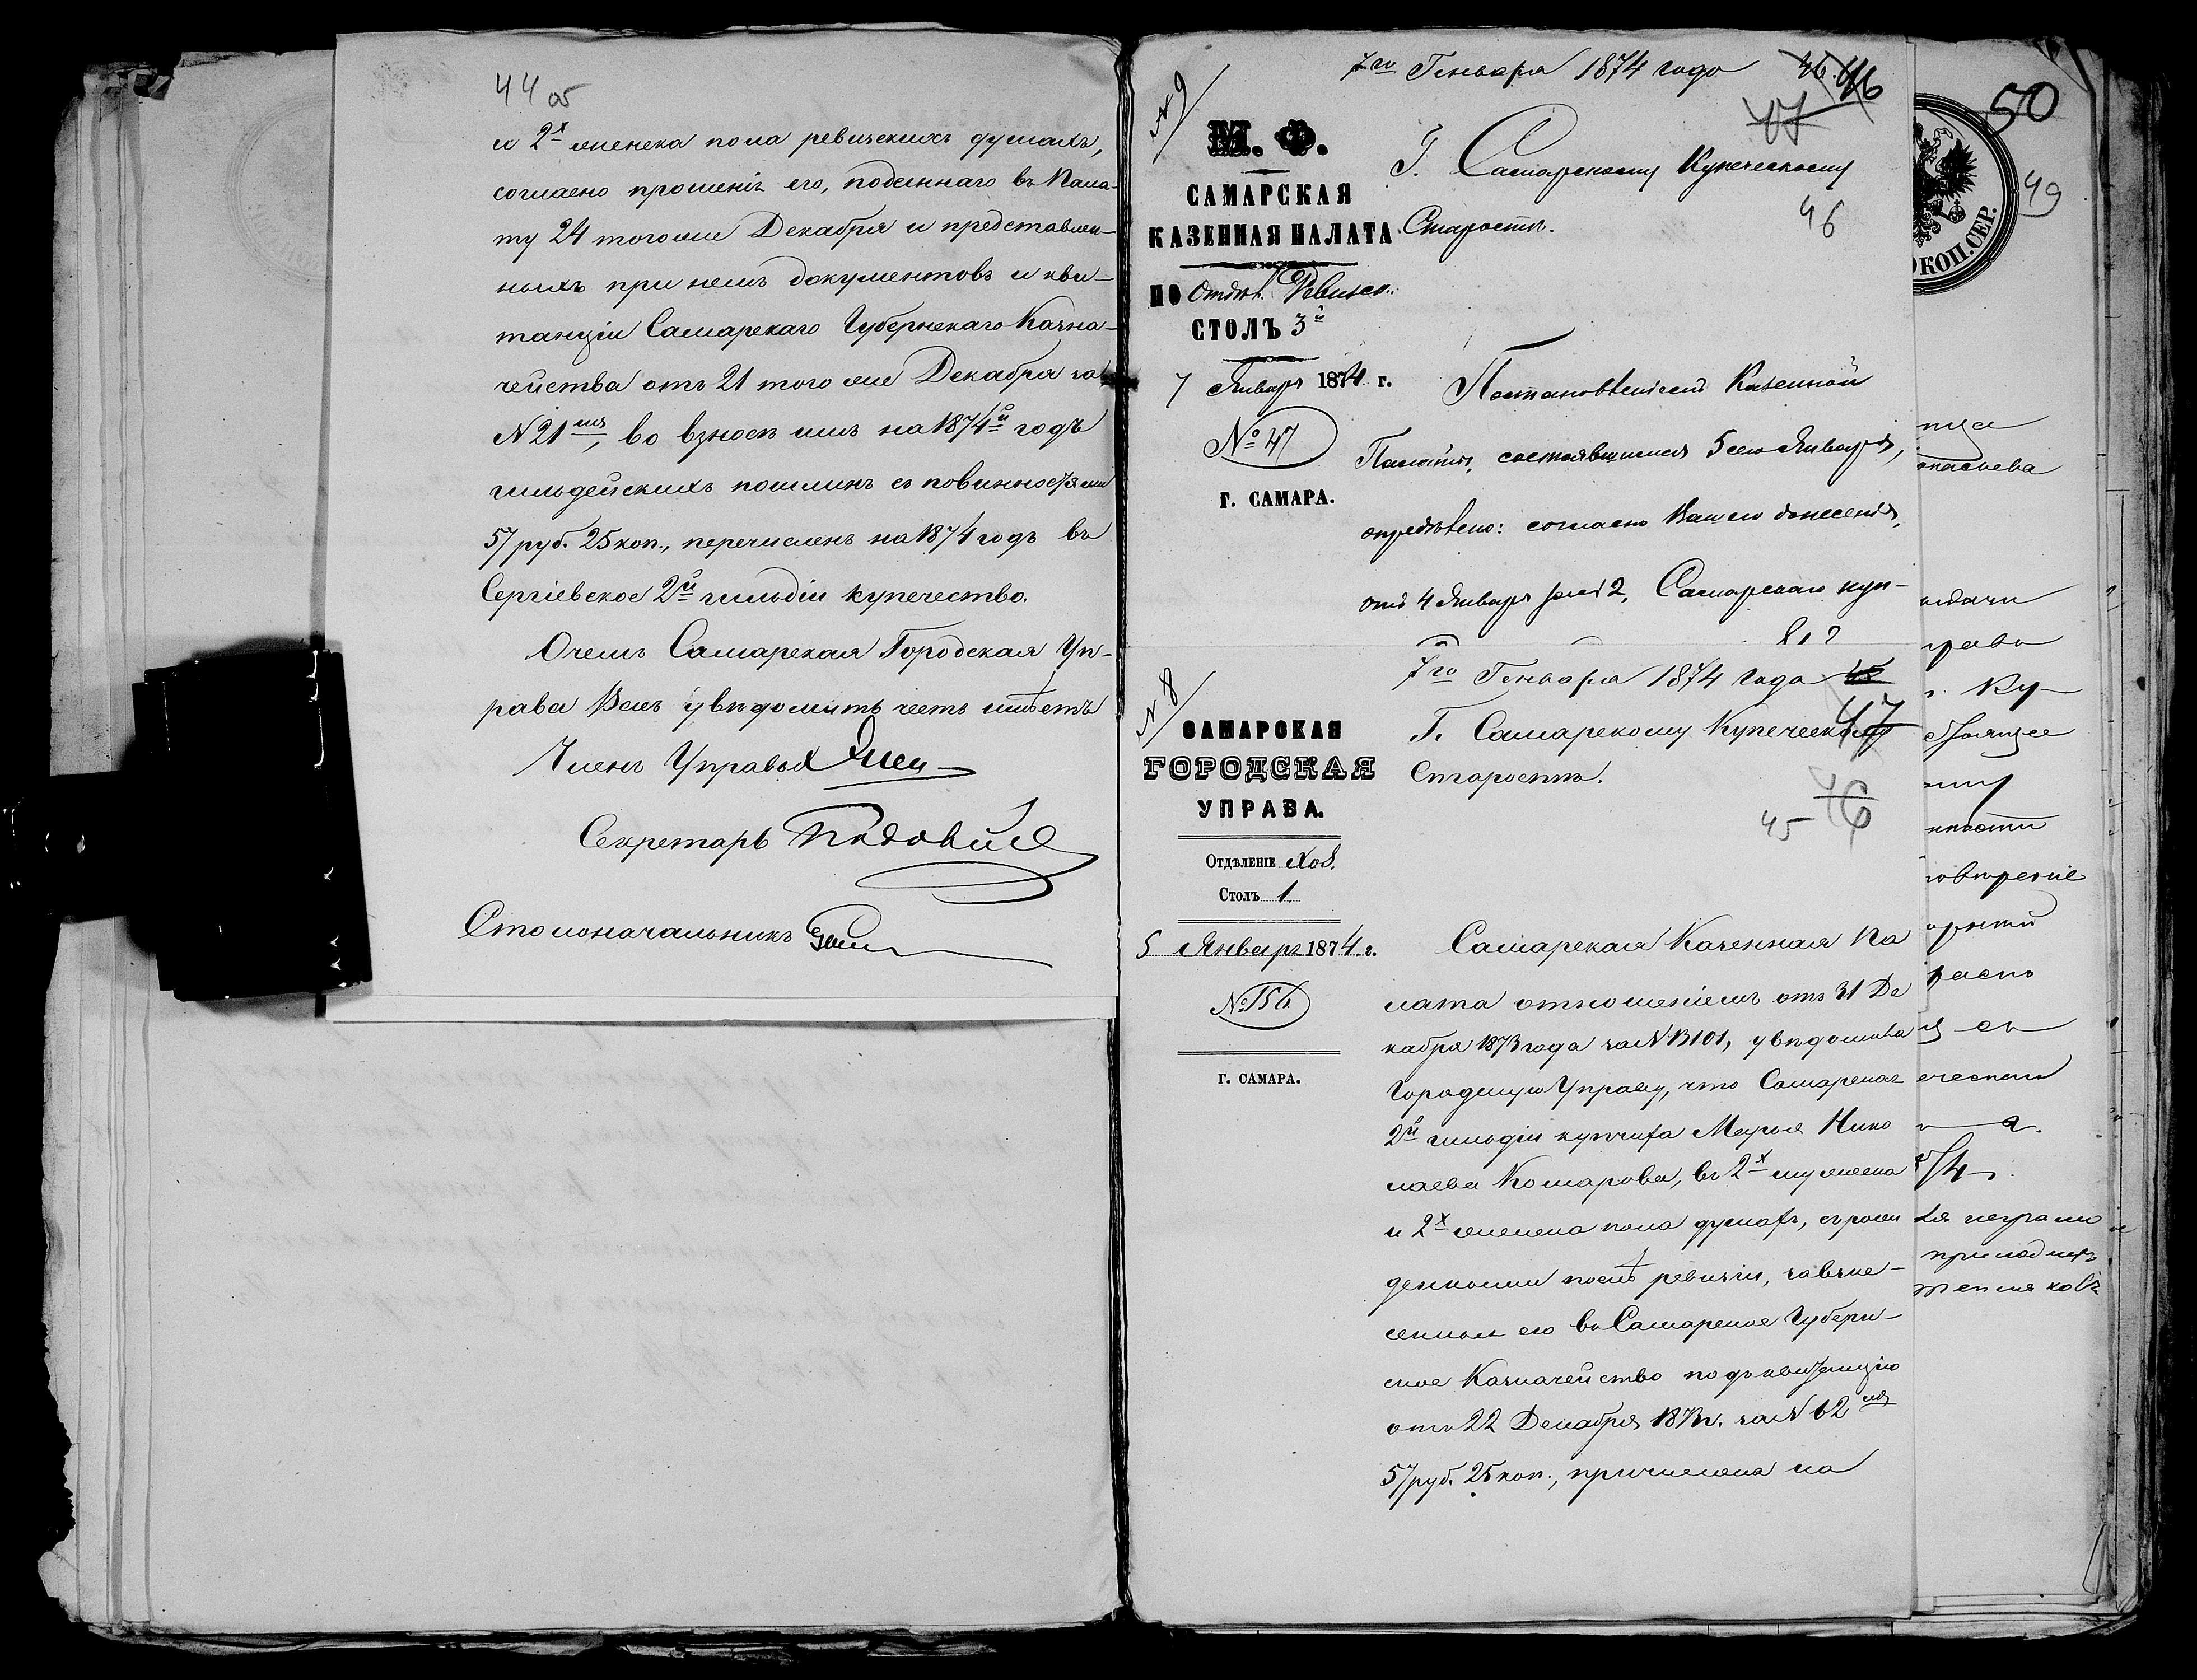 44 об
и 2х женска пола ревизскихъ душахъ,
согласно прошенія его, поданнаго въ Пала-
ту 24 тогоже Декабря и представлен-
ныхъ при немъ документовъ и кви-
танціи Самарскаго Губернскаго Казна-
чейства отъ 21 того же Декабря за
№ 21мъ, во взносѣ имъ на 1874й годъ
гильдейскихъ пошлинъ съ повинностями
57 руб. 25 коп., перечисленъ на 1874 годъ въ
Сергіевское 2й гильдіи купечество.
О чемъ Самарская Городская Уп-
рава Васъ увѣдомить честь имѣетъ
Членъ Управы
Секретарь
Столоначальникъ
7го Генваря 1874 года
46 46
47
№ 9
М. Ф.
САМАРСКАЯ
КАЗЕННАЯ ПАЛАТА
ПО Отдѣл. Ревизск.
СТОЛЪ 3й
7 Январ 1874 г.
№ 47
Г. САМАРА.
Г. Самарскому Купеческому
Старостѣ.
46
Постановленіемъ Казенной
Палаты, состоявшимся 5 сего Января,
опредѣлено: согласно Вашего донесенія,
отъ 4 Января за № 2, Самарскаго куп-
7го Генваря 1874 года
№ 8
САМАРСКАЯ
ГОРОДСКАЯ
УПРАВА.
ОТДѢЛЕНІЕ Хоз.
СТОЛЪ 1.
5 Январ 1874 г.
№ 156
Г. САМАРА.
Г. Самарскому Купеческому
47
Старостѣ.
45 46
Самарская Казенная Па
лата отношеніемъ отъ 31 Де
кабря 1873 года за № 13101, увѣдомила
Городскую Управу, что Самарская
2й гильдіи купчиха Марья Нико
лаева Комарова, въ 2х мужска
и 2х женска пола душахъ, съ рож
денными послѣ ревизіи, за взне-
сенныя ею въ Самарское Губерн-
ское Казначейство подъ квитанцію
отъ 22 Декабря 1873 г. за № 62мъ
57 руб. 25 коп., причислена на
50
49
КОП. СЕР.
пца
выдачи
право
г. Ку-
ности
повѣреніе